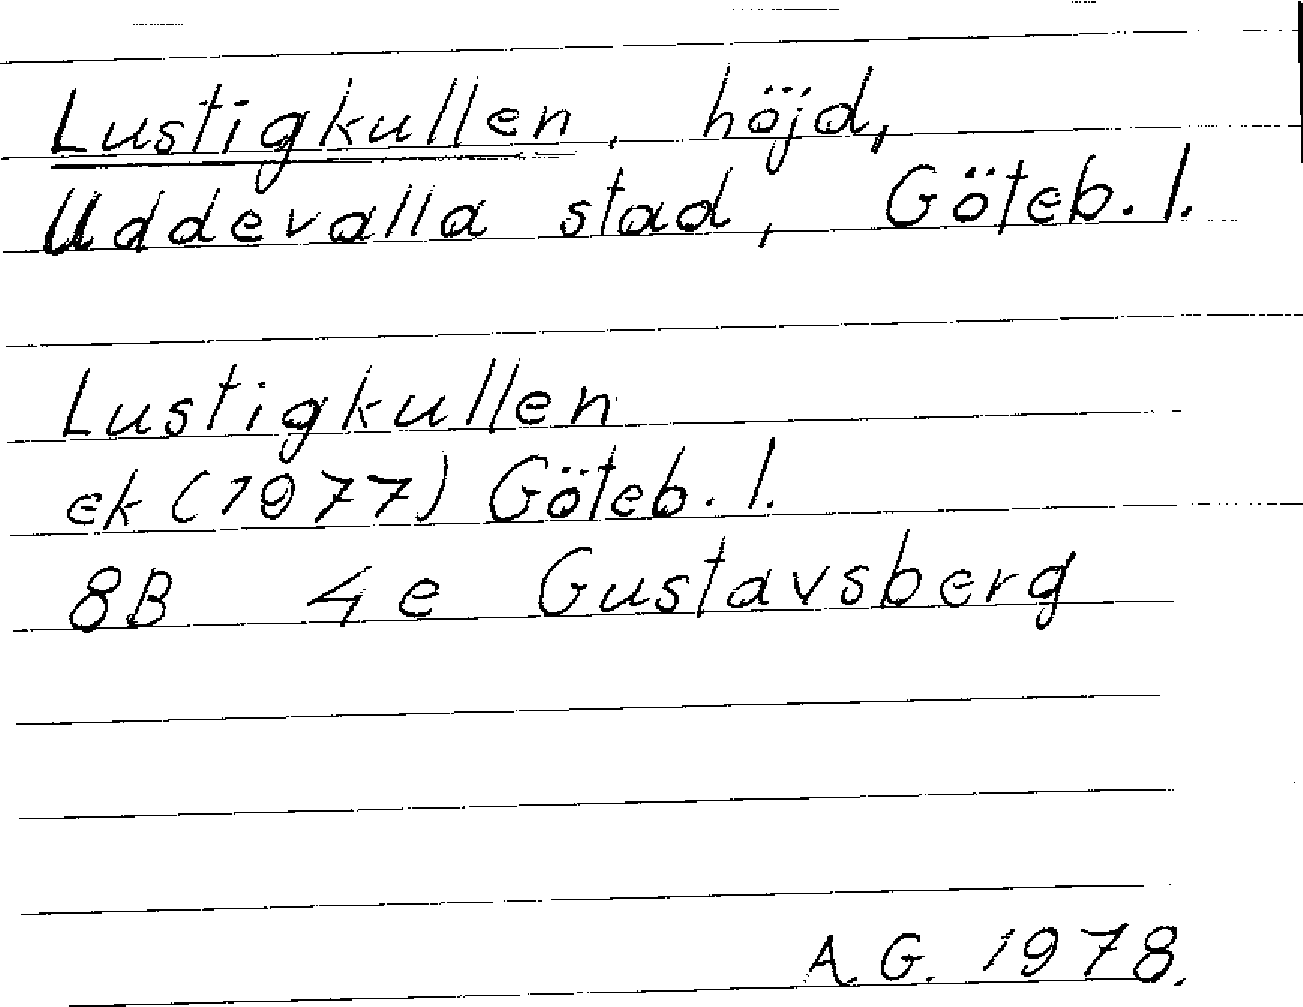 Lustigkullen, höjd,
Uddevalla stad, Göteb. l.
Lustigkullen
ek (1977) Göteb. l.
8B 4e Gustavsberg
A. G. 1978.